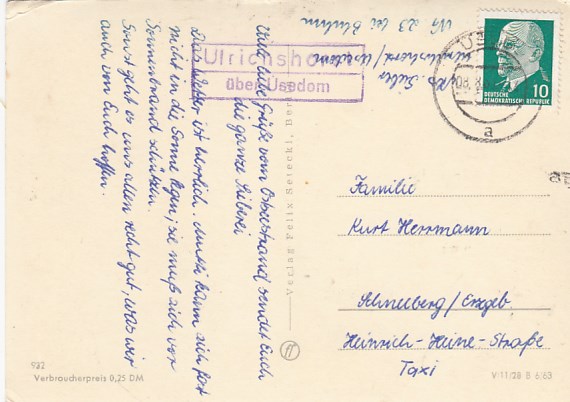 Viele liebe Grüße vom Ostseestrand sendet Euch
die ganze
Das Wetter ist herrlich. Mutti kann sich fast
nicht in die Sonne legen, sie muß sich vor
Sonnenbrand schützen.
Sonst geht es uns allen recht gut, was wir
auch von Euch hoffen.
Ulrichsho
über Usedom
bei
DEUTSCHE
DEMOKRATISCHE REPUBLIK
10
a
Verlag Felix Setecki, Ber
Familie
Kurt Herrmann
Schneeberg/Erzgeb
Heinrich-Heine-Straße
Taxi
932
Verbraucherpreis 0,25 DM
V 11/28 B 6/63